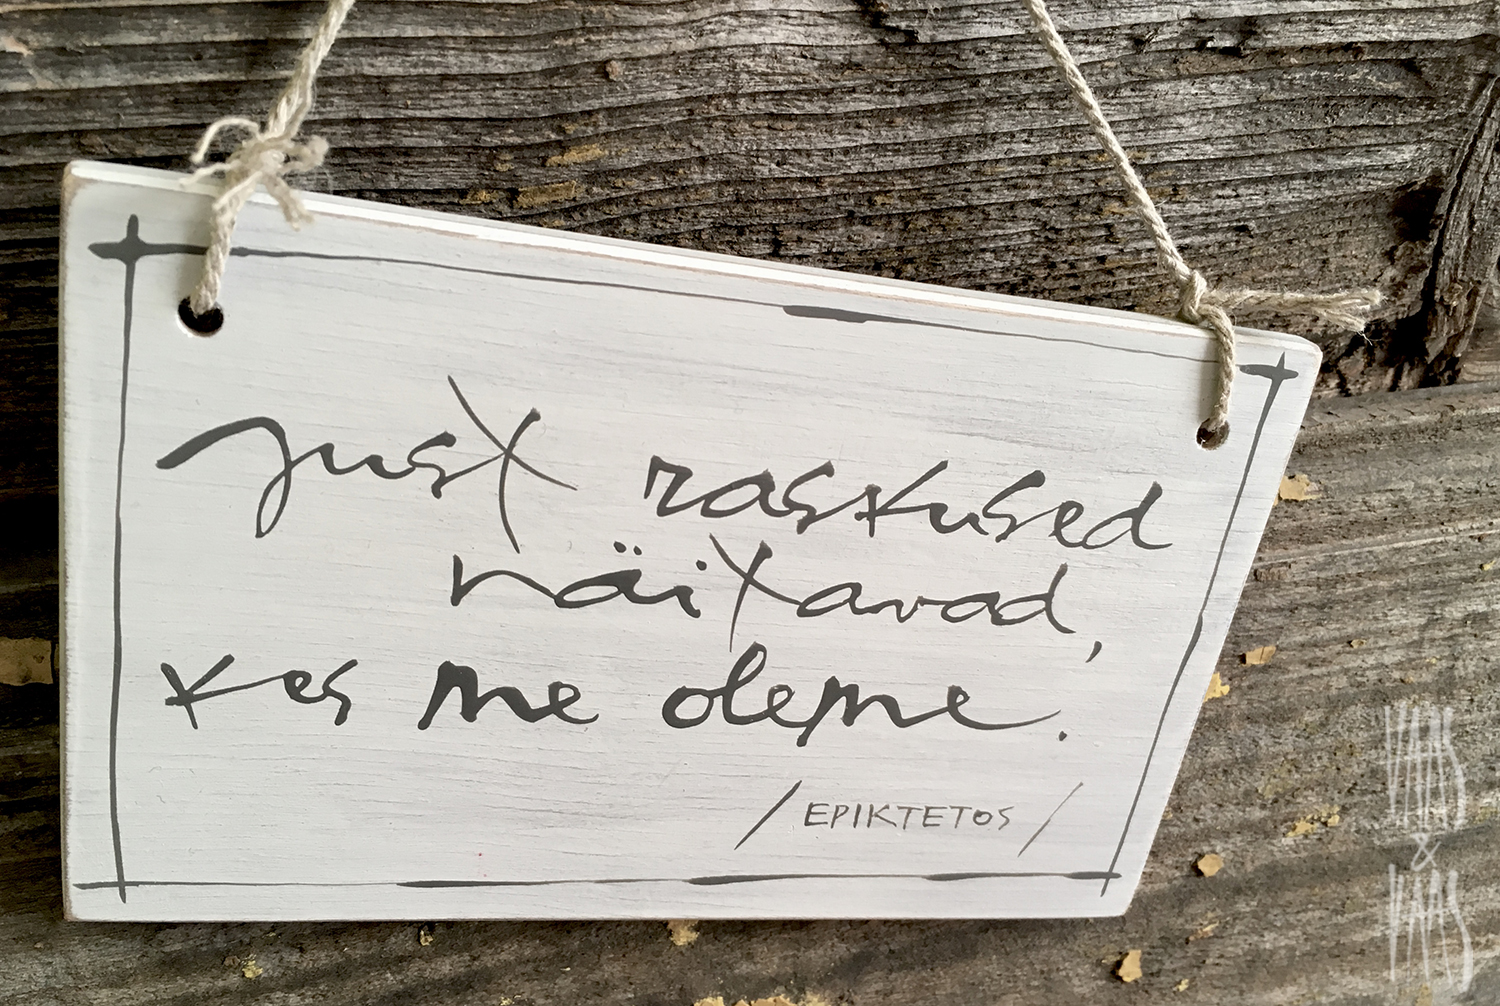 just raskused
näitavad,
kes me oleme.
/EPIKTETOS/
VAAS
&
VAAS